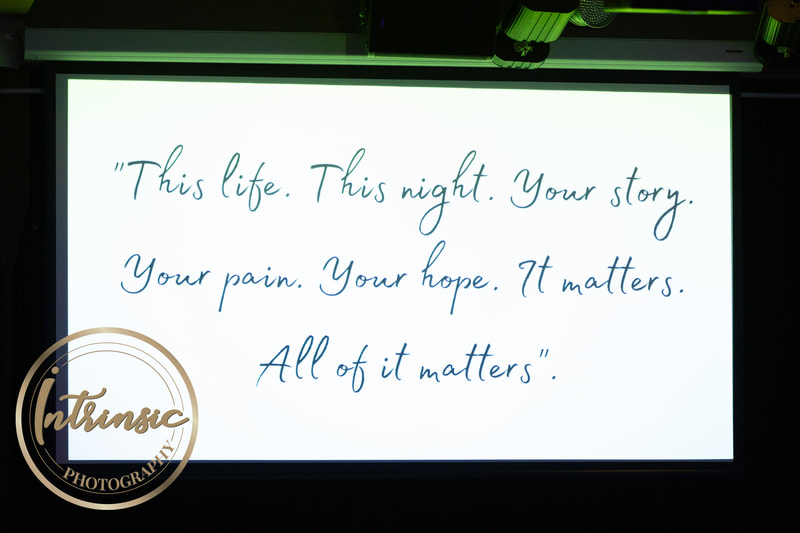 "This life. This night. Your story.
Your pain. Your hope. It matters.
All of it matters".
Intrinsic
PHOTOGRAPHY